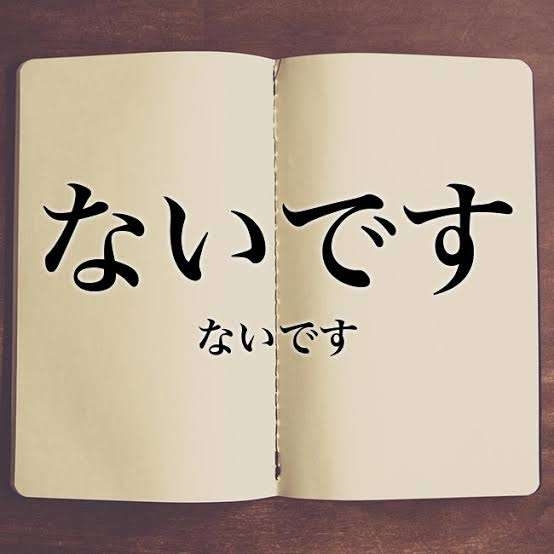 ないです
ないです